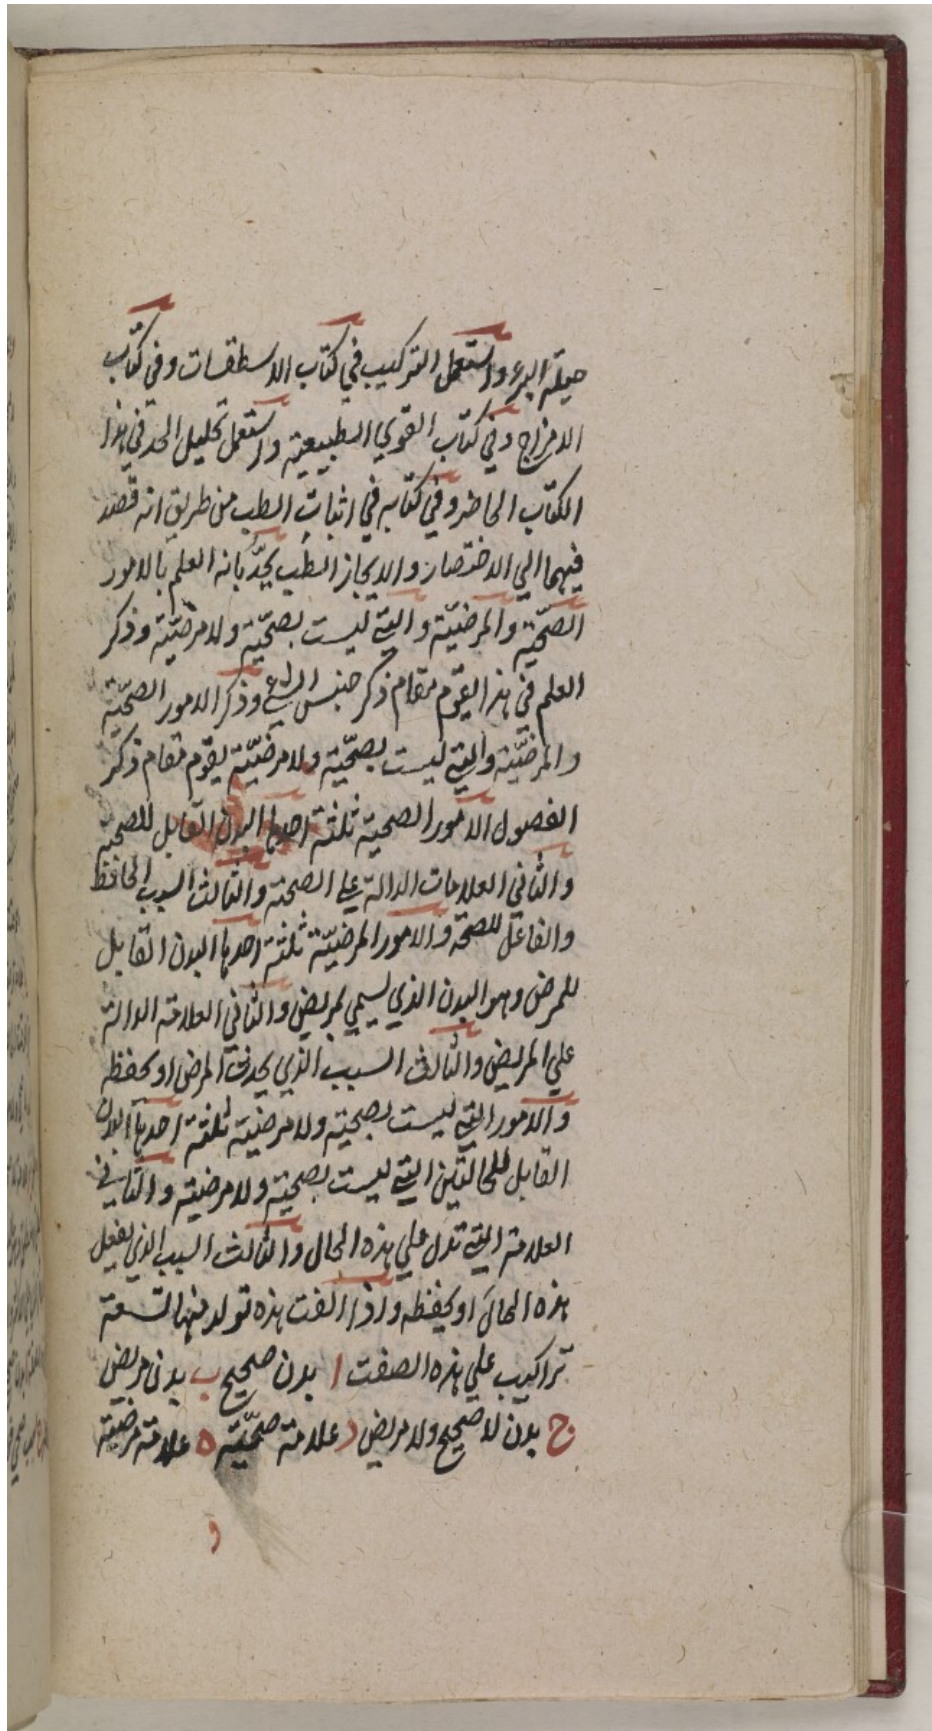 حيلة البرء واستعمل التركيب في كتاب الاسطقسات وفي كتاب
الامزاج وفي كتاب القوي الطبيعية واستعمل تحليل الحد في هذا
الكتاب الحاضر وفي كتابه في اثبات الطب من طريق انه قصد
فيهما الي الاختصار والايجاز الطب يحدّ بانه العلم بالامور
الصحّية والمرضيّة والتي ليست بصحّية ولا مرضيّة وذكر
العلم في هذا يقوم مقام ذكر جنس الشيء وذكر الامور الصحّية
والمرضيّة والتي ليست بصحّية ولا مرضيّة يقوم مقام ذكر
الفصول الامور الصحية ثلثة احدها البدن القابل للصحة
والثاني العلامات الدالة علي الصحة والثالث السبب الحافظ
والفاعل للصحة والامور المرضيّة ثلثة احدها البدن القابل
للمرض وهو البدن الذي يسمي لمريض والثاني العلامة الدالة
علي المريض والثالث السبب الذي يحدث المرض او يحفظه
والامور التي ليست بصحية ولا مرضية ثلثة احدها البدن
القابل للحالتين التي ليست بصحية ولا مرضية والثاني
العلامة التي تدل علي هذه الحال والثالث السبب الذي يفعل
هذه الحال او يحفظه واذا الفت هذه تولد منها تسعة
تراكيب علي هذه الصفت ا بدن صحيح ب بدن مريض
ج بدن لا صحيح ولا مريض د علامة صحّية ه علامة مرضية
و